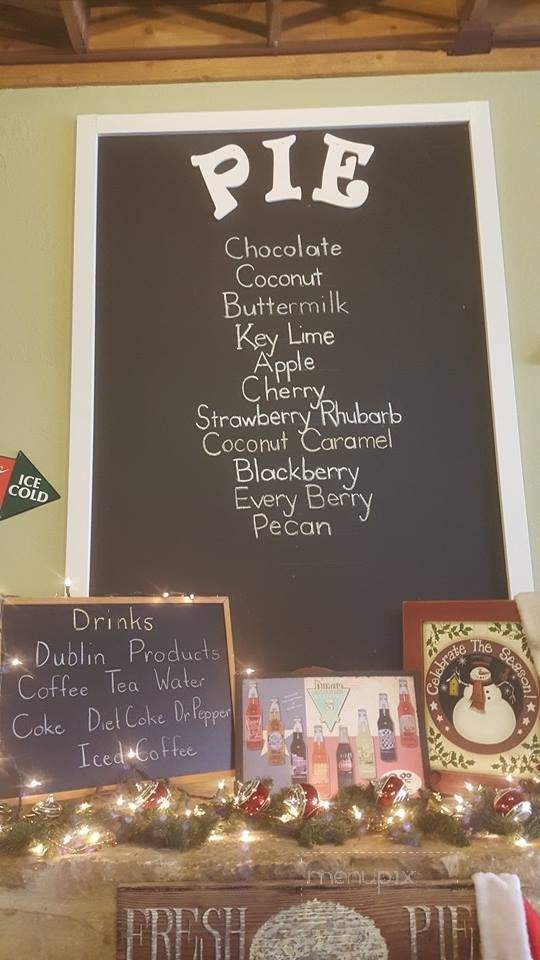 PIE
Chocolate
Coconut
Buttermilk
Key Lime
Apple
Cherry
Strawberry Rhubarb
Coconut Caramel
Blackberry
Every Berry
Pecan
ICE
COLD
Drinks
Dublin Products
Coffee Tea Water
Coke Diet Coke Dr Pepper
Iced Coffee
Celebrate The Season!
menupix
FRESH PIE